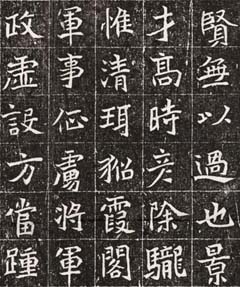 賢無以過也景
才髙時彦除
惟清珥貂霞閣
軍事征虜將軍
政虛設方當踵